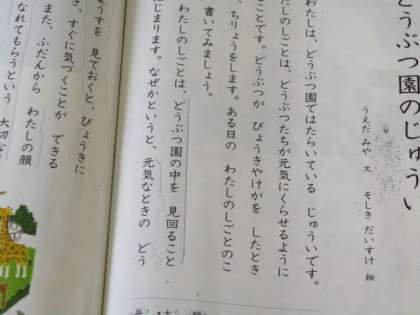 どうぶつ園のじゅうい
うえだ みや 文　そしき だいすけ 絵
わたしは、どうぶつ園ではたらいている じゅういです。
わたしのしごとは、どうぶつたちが元気にくらせるように
ことです。どうぶつが びょうきやけがを したとき
、ちりょうをします。ある日の わたしのしごとのこ
書いてみましょう。
わたしのしごとは、どうぶつ園の中を 見回ること
じまります。なぜかというと、元気なときの どう
ようすを 見ておくと、びょうきに
き、すぐに気づくことが できる
また、ふだんから わたしの顔
なれてもらうという 大切な